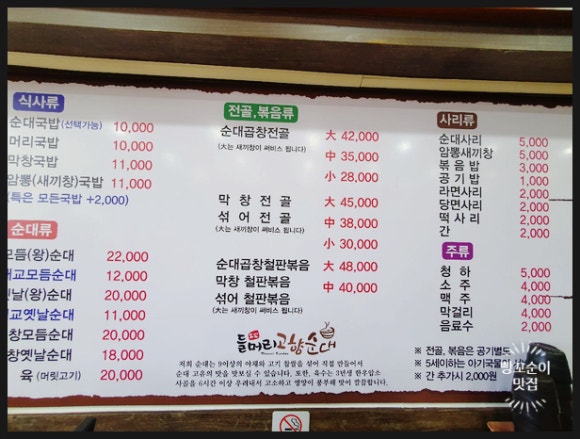 식사류
순대국밥(선택가능) 10,000
머리국밥 10,000
막창국밥 11,000
암뽕(새끼창)국밥 11,000
(특은 모든국밥 +2,000)
순대류
모듬(왕)순대 22,000
모듬순대 12,000
(왕)순대 20,000
옛날순대 11,000
창모듬순대 20,000
창옛날순대 18,000
육 (머릿고기) 20,000
전골,볶음류
순대곱창전골 大 42,000
(大는 새끼창이 써비스 됩니다) 中 35,000
小 28,000
막창전골 大 45,000
섞어전골 中 38,000
(大는 새끼창이 써비스 됩니다)
小 30,000
순대곱창철판볶음 大 48,000
막창 철판볶음 中 40,000
섞어 철판볶음
들머리고향순대
저희 순대는 9이상의 야채와 고기 찹쌀을 섞어 직접 만들어서
순대 고유의 맛을 맛보실 수 있습니다. 또한, 육수는 3년생 한우암소
사골을 6시간 이상 우려내서 고소하고 영양이 풍부해 맛이 깔끔합니다.
사리류
순대사리 5,000
암뽕새끼창 5,000
볶음밥 3,000
공기밥 1,000
라면사리 2,000
당면사리 2,000
떡사리 2,000
간 2,000
주류
청하 5,000
소주 4,000
맥주 4,000
막걸리 4,000
음료수 2,000
※ 전골, 볶음은 공기밥별도
※ 5세이하는 아기국물
※ 간 추가시 2,000원
꼬순이
맛집